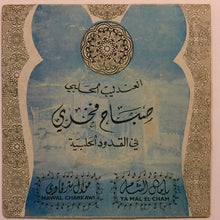 العندليب الحلبي
صباح فخري
في القدود الحلبية
موال شرقاوي يا مال الشام
MAWAL CHARKAWI YA MAL EL-CHAM